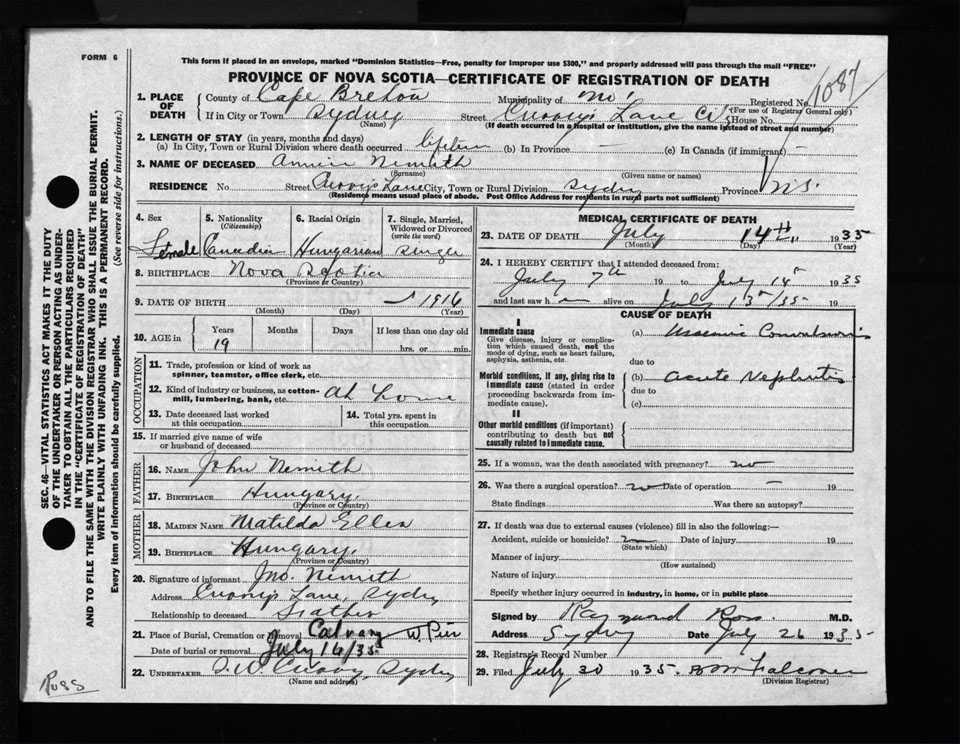 FORM 6
This form if placed in an envelope, marked "Dominion Statistics—Free, penalty for improper use $300," and properly addressed will pass through the mail "FREE"
PROVINCE OF NOVA SCOTIA—CERTIFICATE OF REGISTRATION OF DEATH
SEC. 46—VITAL STATISTICS ACT MAKES IT THE DUTY
OF THE UNDERTAKER OR PERSON ACTING AS UNDER-
TAKER TO OBTAIN ALL THE PARTICULARS REQUIRED
IN THE "CERTIFICATE OF REGISTRATION OF DEATH"
AND TO FILE THE SAME WITH THE DIVISION REGISTRAR WHO SHALL ISSUE THE BURIAL PERMIT.
WRITE PLAINLY WITH UNFADING INK. THIS IS A PERMANENT RECORD.
Every item of information should be carefully supplied. (See reverse side for instructions.)
1. PLACE OF DEATH
County of Cape Breton Municipality of Registered No. 1087
(For use of Registrar General only)
If in City or Town Sydney Street Lane House No.
(Name) (If death occurred in a hospital or institution, give the name instead of street and number)
2. LENGTH OF STAY (in years, months and days)
(a) In City, Town or Rural Division where death occurred lifetime (b) In Province — (c) In Canada (if immigrant) —
3. NAME OF DECEASED Annie Nemith
(Surname) (Given name or names)
RESIDENCE No. Street Lane City, Town or Rural Division Sydney Province N.S.
(Residence means usual place of abode. Post Office Address for residents in rural parts not sufficient)
4. Sex Female
5. Nationality (Citizenship) Canadian
6. Racial Origin Hungarian
7. Single, Married, Widowed or Divorced (write the word) Single
8. BIRTHPLACE Nova Scotia
(Province or Country)
9. DATE OF BIRTH 1916
(Month) (Day) (Year)
10. AGE in Years 19 Months Days If less than one day old
hrs. or min.
OCCUPATION
11. Trade, profession or kind of work as
spinner, teamster, office clerk, etc.
12. Kind of industry or business, as cotton-
mill, lumbering, bank, etc. At Home
13. Date deceased last worked
at this occupation
14. Total yrs. spent in
this occupation
15. If married give name of wife
or husband of deceased
FATHER
16. NAME John Nemith
17. BIRTHPLACE Hungary
(Province or Country)
MOTHER
18. MAIDEN NAME Matilda Ellen
19. BIRTHPLACE Hungary
(Province or Country)
20. Signature of informant Jno. Nemith
Address Lane, Sydney
Relationship to deceased Father
21. Place of Burial, Cremation or Removal Calvary W Pier
Date of burial or removal July 16/35
22. UNDERTAKER Curry Sydney
(Name and address)
MEDICAL CERTIFICATE OF DEATH
23. DATE OF DEATH July 14th, 1935
(Month) (Day) (Year)
24. I HEREBY CERTIFY that I attended deceased from:
July 7th 19 to July 14 1935
and last saw h alive on July 13/35 19
CAUSE OF DEATH
I
Immediate cause
Give disease, injury or complica-
tion which caused death, not the
mode of dying, such as heart failure,
asphyxia, asthenia, etc.
(a) Uraemic Convulsions
due to
Morbid conditions, if any, giving rise to
immediate cause (stated in order
proceeding backwards from im-
mediate cause).
(b) Acute Nephritis
due to
(c)
II
Other morbid conditions (if important)
contributing to death but not
causally related to immediate cause.
25. If a woman, was the death associated with pregnancy? no
26. Was there a surgical operation? no Date of operation — 19
State findings Was there an autopsy?
27. If death was due to external causes (violence) fill in also the following:—
Accident, suicide or homicide? Date of injury 19
(State which)
Manner of injury
(How sustained)
Nature of injury
Specify whether injury occurred in industry, in home, or in public place
Signed by Raymond Ross. M.D.
Address Sydney Date July 26 1935
28. Registrar's Record Number
29. Filed July 30 1935. Falconer
(Division Registrar)
Russ